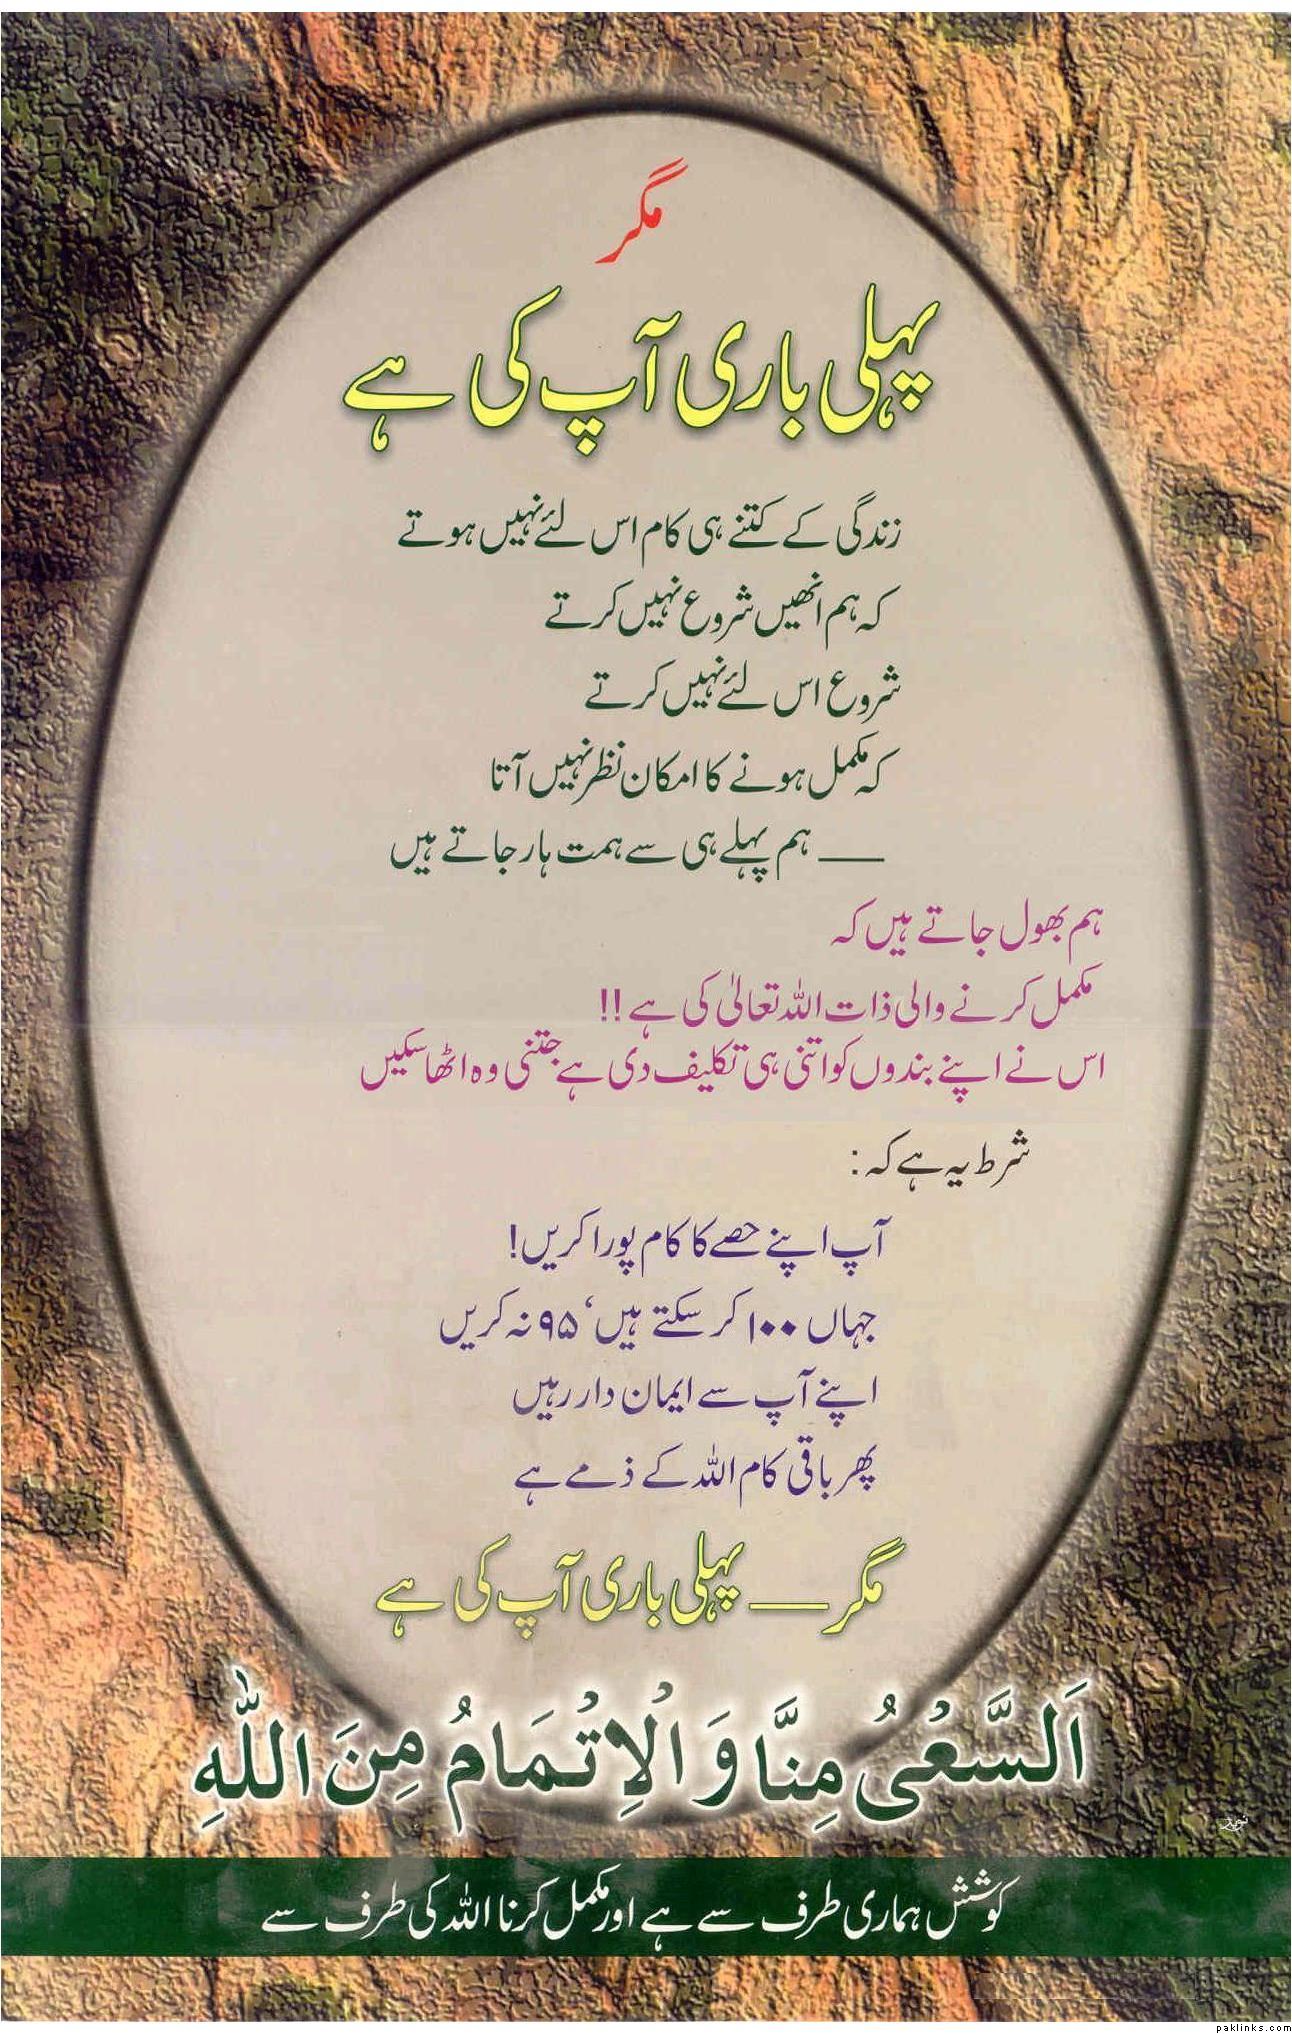 مگر
پہلی باری آپ کی ہے
زندگی کے کتنے ہی کام اس لئے نہیں ہوتے
کہ ہم انھیں شروع نہیں کرتے
شروع اس لئے نہیں کرتے
کہ مکمل ہونے کا امکان نظر نہیں آتا
— ہم پہلے ہی سے ہمت ہار جاتے ہیں
ہم بھول جاتے ہیں کہ
مکمل کرنے والی ذات اللہ تعالیٰ کی ہے !!
اس نے اپنے بندوں کو اتنی ہی تکلیف دی ہے جتنی وہ اٹھا سکیں
شرط یہ ہے کہ:
آپ اپنے حصے کا کام پورا کریں!
جہاں ۱۰۰ کر سکتے ہیں، ۹۵ نہ کریں
اپنے آپ سے ایمان دار رہیں
پھر باقی کام اللہ کے ذمے ہے
مگر — پہلی باری آپ کی ہے
اَلسَّعْیُ مِنَّا وَ الْاِتْمَامُ مِنَ اللّٰهِ
کوشش ہماری طرف سے ہے اور مکمل کرنا اللہ کی طرف سے
paklinks.com